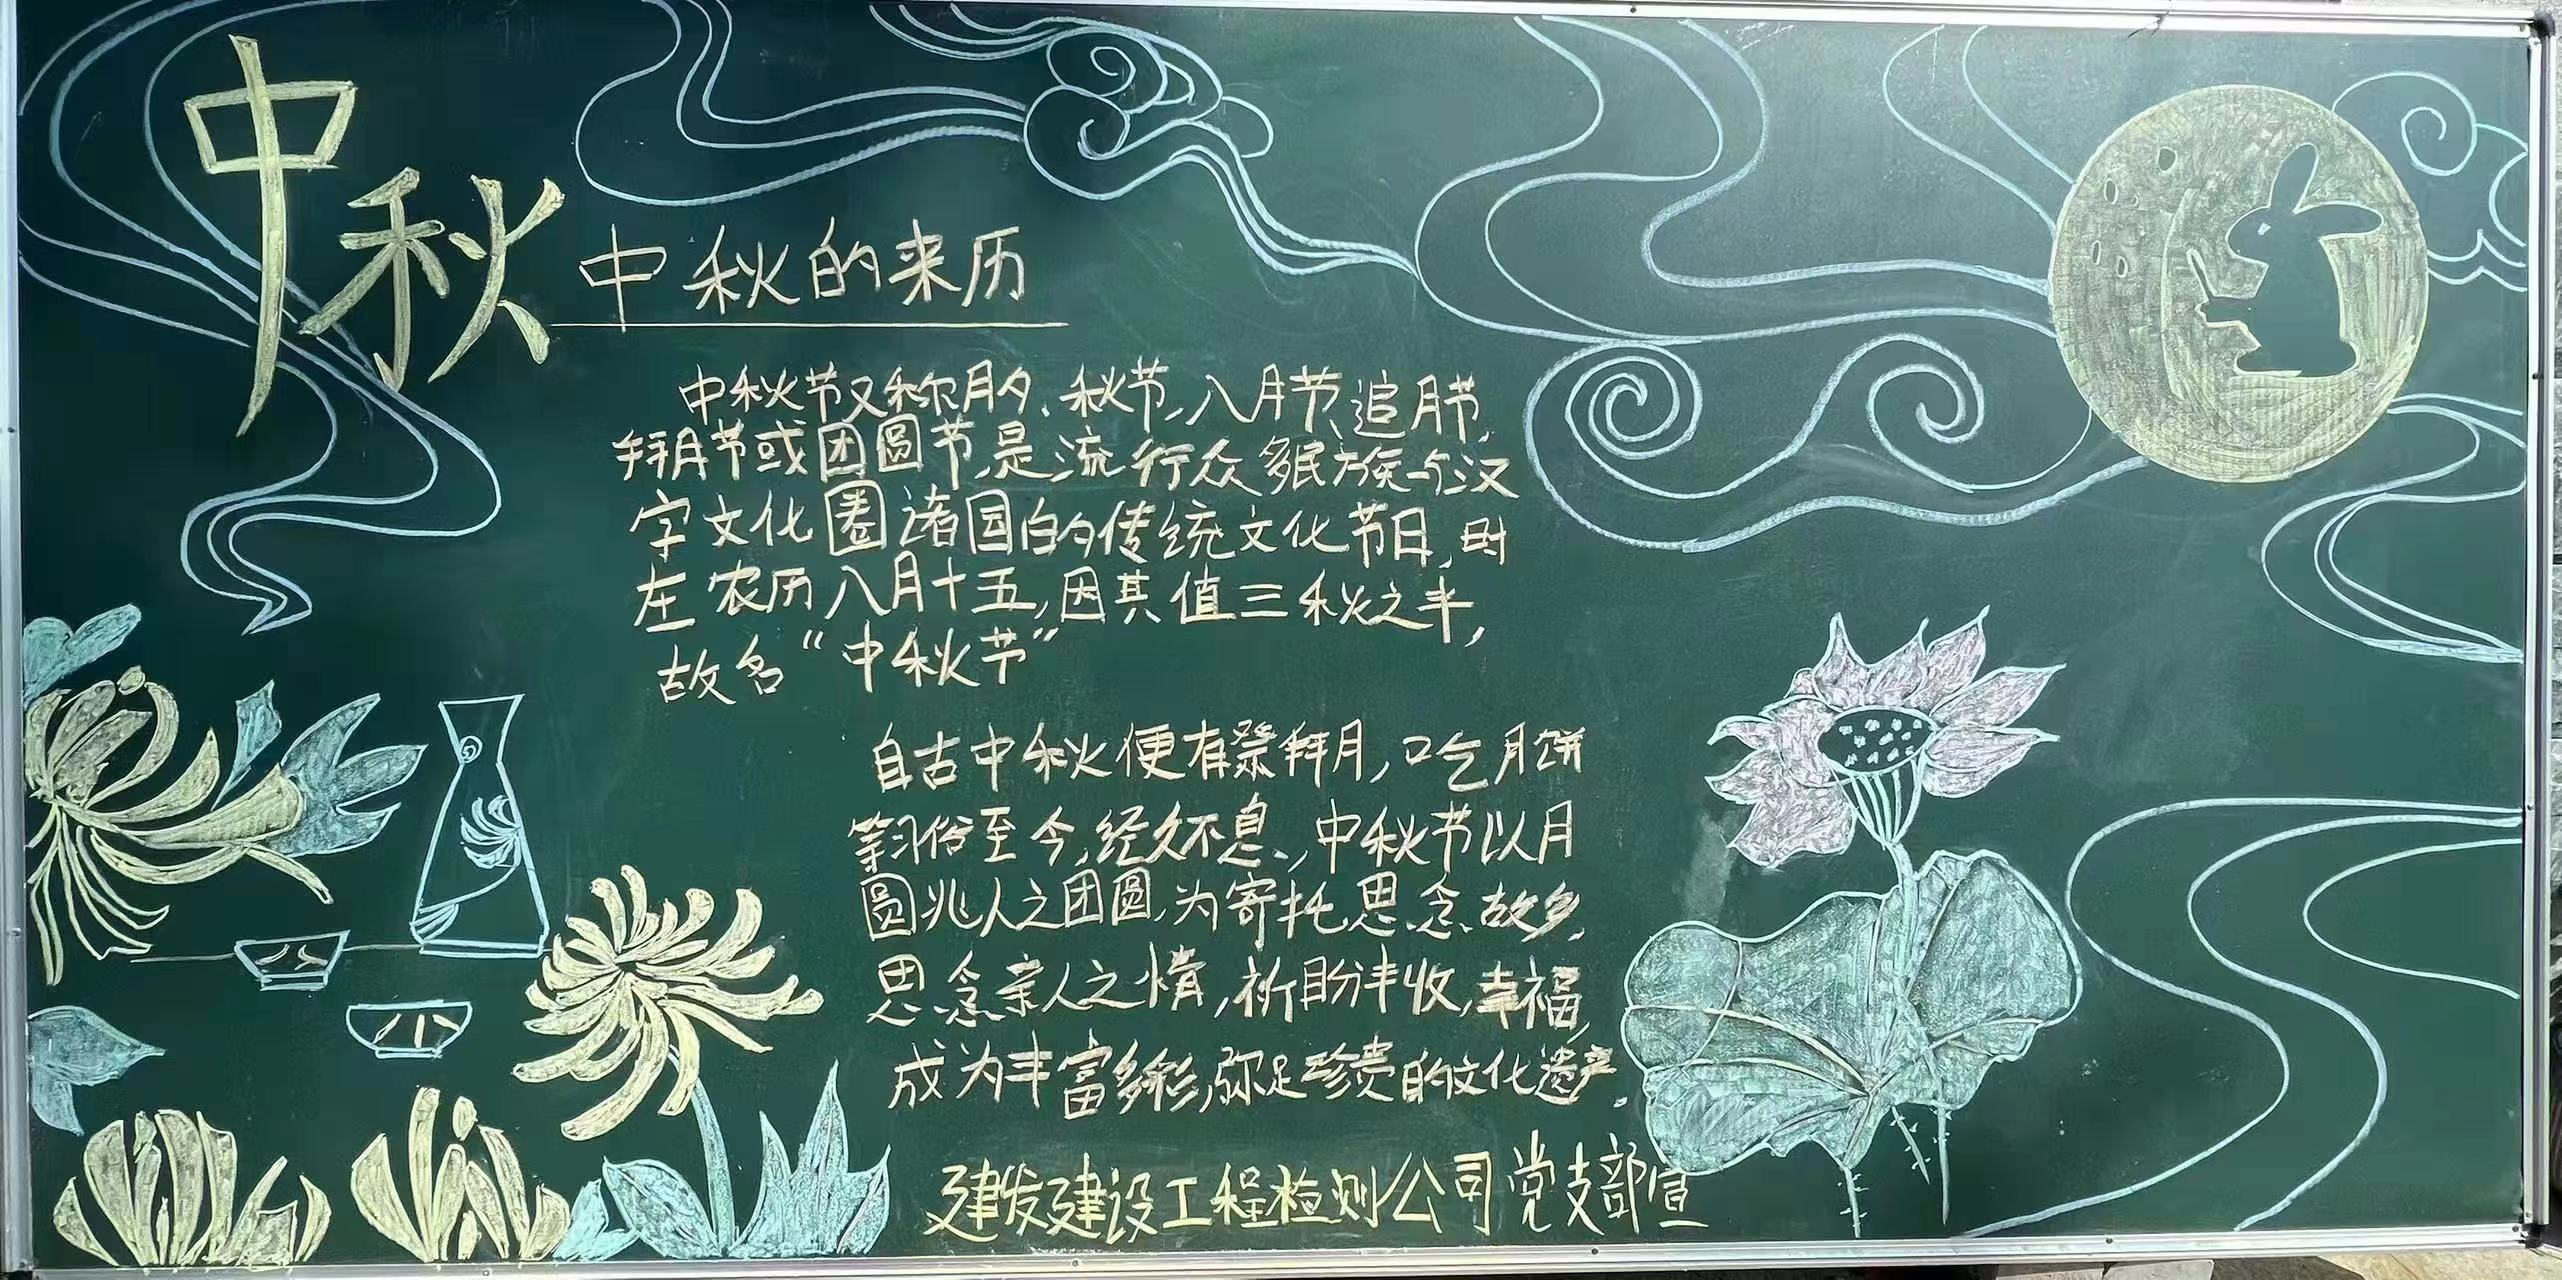 中秋
中秋的来历
中秋节又称月夕、秋节、八月节、追月节、
拜月节或团圆节,是流行众多民族与汉
字文化圈诸国的传统文化节日,时
在农历八月十五,因其值三秋之半,
故名“中秋节”
自古中秋便有祭拜月,吃月饼
等习俗至今,经久不息,中秋节以月
圆兆人之团圆,为寄托思念故乡,
思念亲人之情,祈盼丰收,幸福,
成为丰富多彩,弥足珍贵的文化遗产.
建发建设工程检测公司党支部宣